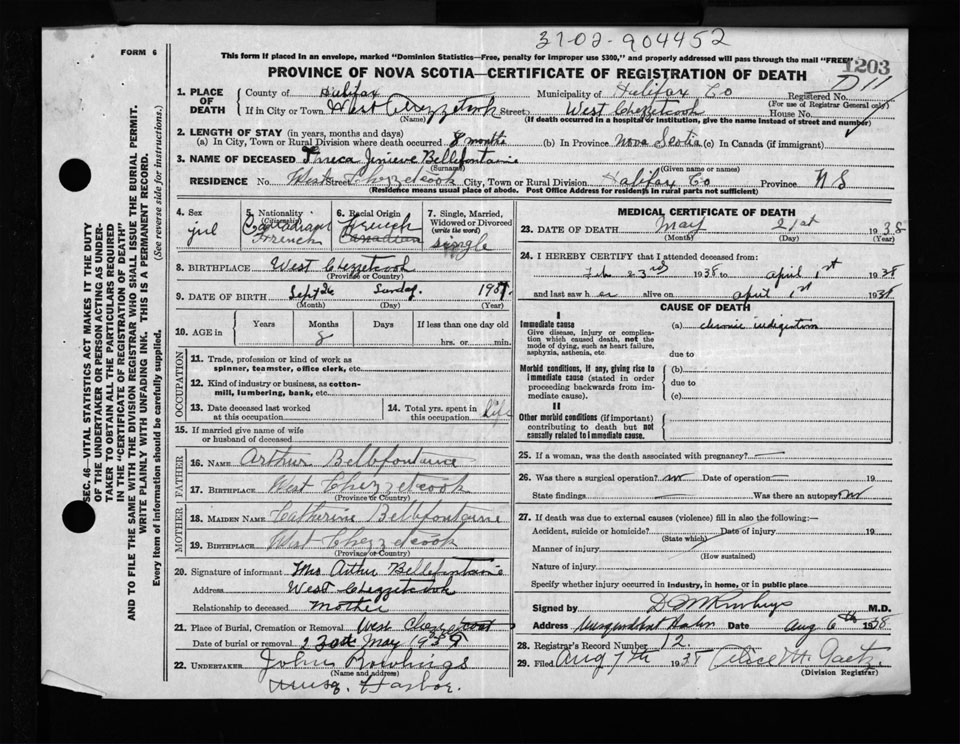 31-02-904452
FORM 6
This form if placed in an envelope, marked "Dominion Statistics—Free, penalty for improper use $300," and properly addressed will pass through the mail "FREE"
1203
PROVINCE OF NOVA SCOTIA—CERTIFICATE OF REGISTRATION OF DEATH
1. PLACE OF DEATH
County of Halifax Municipality of Halifax Co Registered No.
(For use of Registrar General only)
If in City or Town West Chezzetcook Street West Chezzetcook House No.
(Name) (If death occurred in a hospital or institution, give the name instead of street and number)
2. LENGTH OF STAY (in years, months and days)
(a) In City, Town or Rural Division where death occurred 8 months (b) In Province Nova Scotia (c) In Canada (if immigrant)
3. NAME OF DECEASED Jenieve Bellefontaine
(Surname) (Given name or names)
RESIDENCE No. West Street Chezzetcook City, Town or Rural Division Halifax Co Province N S
(Residence means usual place of abode. Post Office Address for residents in rural parts not sufficient)
4. Sex
5. Nationality (Citizenship) French
6. Racial Origin French Canadian
7. Single, Married, Widowed or Divorced (write the word) single
8. BIRTHPLACE West Chezzetcook
(Province or Country)
9. DATE OF BIRTH Sept 26 Sunday 193
(Month) (Day) (Year)
10. AGE in Years Months Days If less than one day old
8 hrs. or min.
OCCUPATION
11. Trade, profession or kind of work as spinner, teamster, office clerk, etc.
12. Kind of industry or business, as cotton-mill, lumbering, bank, etc.
13. Date deceased last worked at this occupation
14. Total yrs. spent in this occupation life
15. If married give name of wife or husband of deceased
FATHER
16. NAME Arthur Bellefontaine
17. BIRTHPLACE West Chezzetcook
(Province or Country)
MOTHER
18. MAIDEN NAME Catherine Bellefontaine
19. BIRTHPLACE West Chezzetcook
(Province or Country)
20. Signature of informant Mrs Arthur Bellefontaine
Address West Chezzetcook
Relationship to deceased Mother
21. Place of Burial, Cremation or Removal West Chezzetcook
Date of burial or removal 23 May 193
22. UNDERTAKER John Rowlings
(Name and address)
Musq. Harbor.
MEDICAL CERTIFICATE OF DEATH
23. DATE OF DEATH May 21st 1938
(Month) (Day) (Year)
24. I HEREBY CERTIFY that I attended deceased from:
Feb 23rd 1938 to april 1st 1938
and last saw her alive on april 1st 1938
CAUSE OF DEATH
I
Immediate cause (a) chronic indigestion
Give disease, injury or complication which caused death, not the mode of dying, such as heart failure, asphyxia, asthenia, etc.
due to
Morbid conditions, if any, giving rise to immediate cause (stated in order proceeding backwards from immediate cause).
(b)
due to
(c)
II
Other morbid conditions (if important) contributing to death but not causally related to immediate cause.
25. If a woman, was the death associated with pregnancy? —
26. Was there a surgical operation? no Date of operation — 19
State findings — Was there an autopsy? no
27. If death was due to external causes (violence) fill in also the following:—
Accident, suicide or homicide? Date of injury 19
(State which)
Manner of injury
(How sustained)
Nature of injury
Specify whether injury occurred in industry, in home, or in public place
Signed by M.D.
Address Musquodoboit Harbor Date Aug 6th 1938
28. Registrar's Record Number 12.
29. Filed Aug 7th 1938 Alice M. Gaetz
(Division Registrar)
SEC. 46—VITAL STATISTICS ACT MAKES IT THE DUTY
OF THE UNDERTAKER OR PERSON ACTING AS UNDER-
TAKER TO OBTAIN ALL THE PARTICULARS REQUIRED
IN THE "CERTIFICATE OF REGISTRATION OF DEATH"
AND TO FILE THE SAME WITH THE DIVISION REGISTRAR WHO SHALL ISSUE THE BURIAL PERMIT.
WRITE PLAINLY WITH UNFADING INK. THIS IS A PERMANENT RECORD.
Every item of information should be carefully supplied. (See reverse side for instructions.)